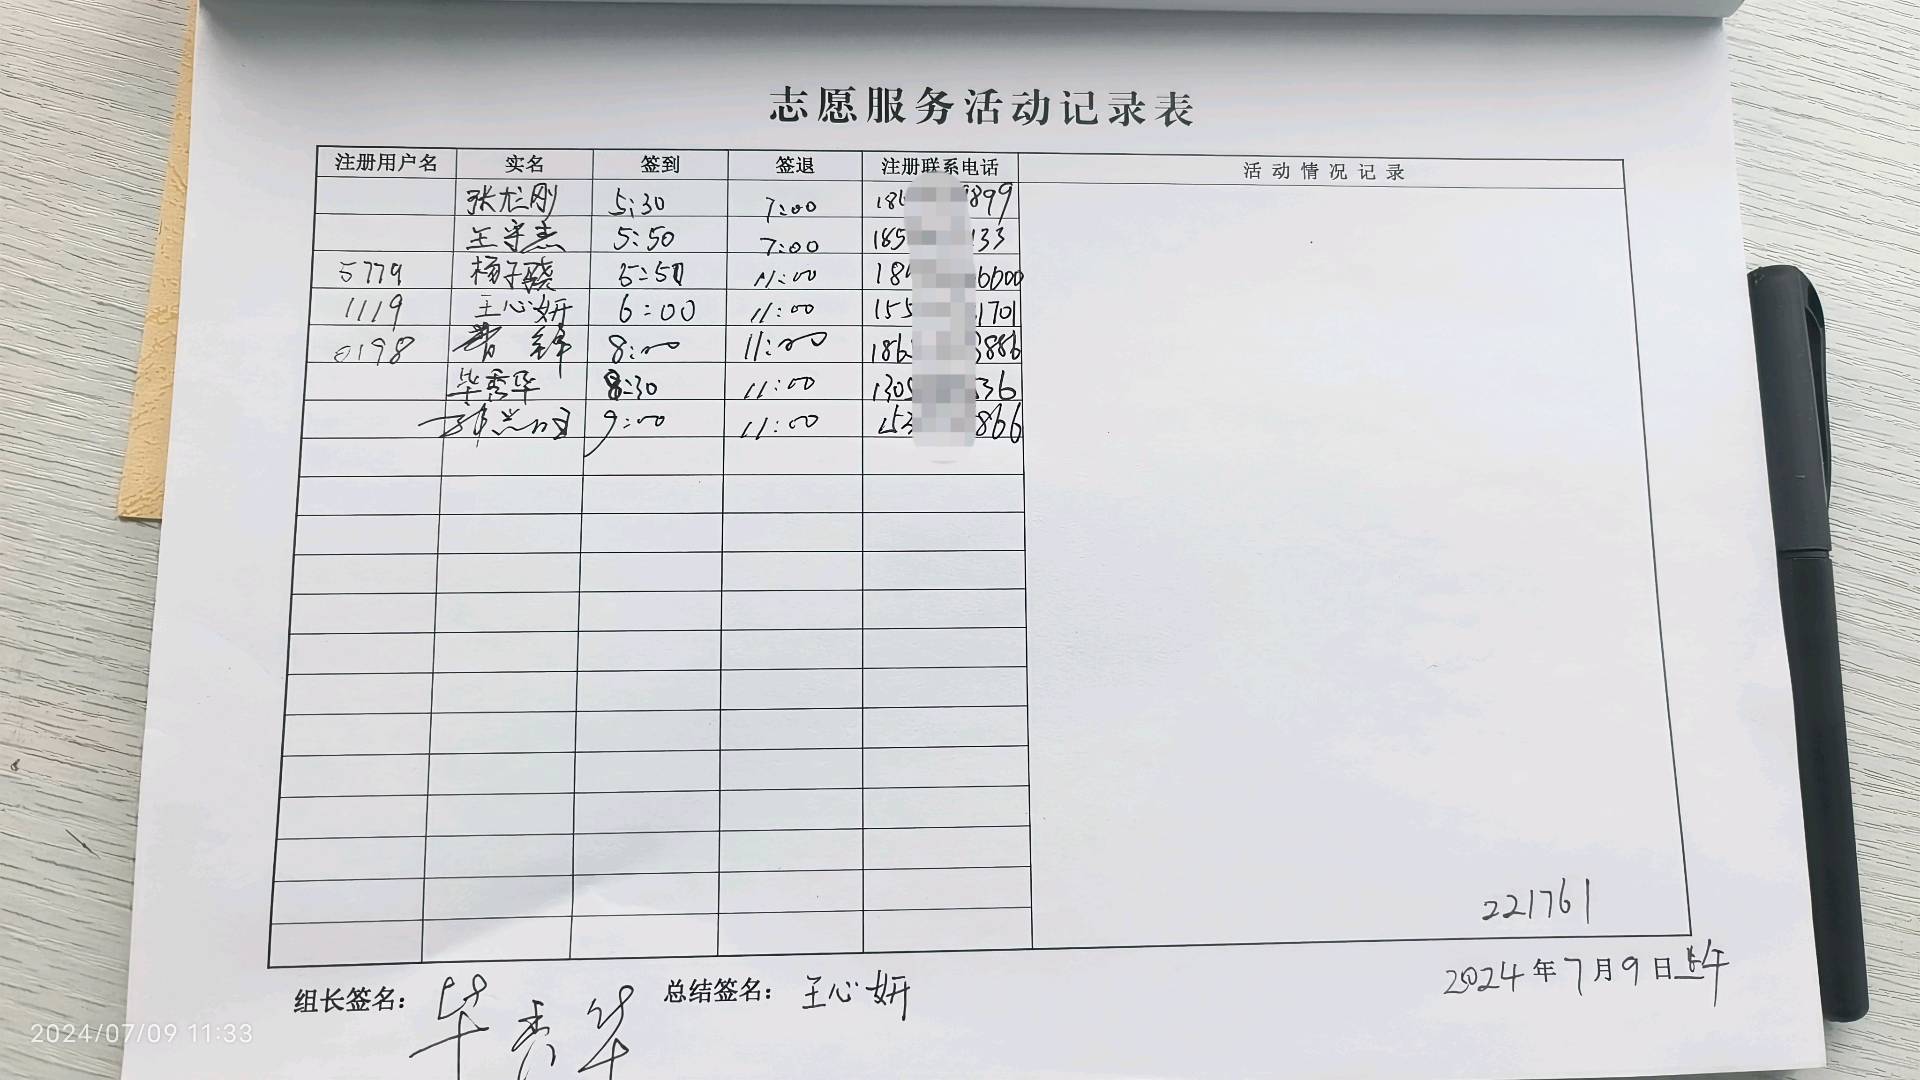 志愿服务活动记录表
注册用户名 实名 签到 签退 注册联系电话 活动情况记录
5:30 7:00 18 899
王守杰 5:50 7:00 185 133
5779 杨子骁 5:51 11:00 18 6000
1119 王心妍 6:00 11:00 155 1701
0198 8:00 11:00 186 3886
毕秀华 8:30 11:00 130 536
9:00 11:00 152 866
221761
2024年7月9日上午
组长签名： 毕秀华 总结签名： 王心妍
2024/07/09 11:33